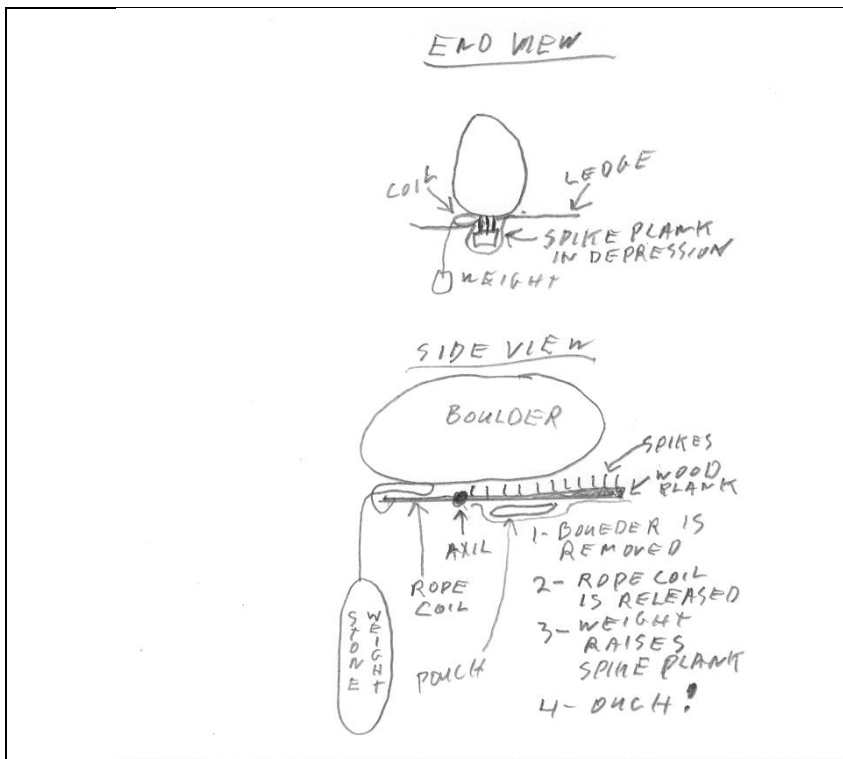 END VIEW
COIL
LEDGE
SPIKE PLANK
IN DEPRESSION
WEIGHT
SIDE VIEW
BOULDER
SPIKES
WOOD
PLANK
AXIL
ROPE
COIL
POUCH
STONE
WEIGHT
1- BOUEDER IS
REMOVED
2- ROPE COIL
IS RELEASED
3- WEIGHT
RAISES
SPIKE PLANK
4- OUCH!